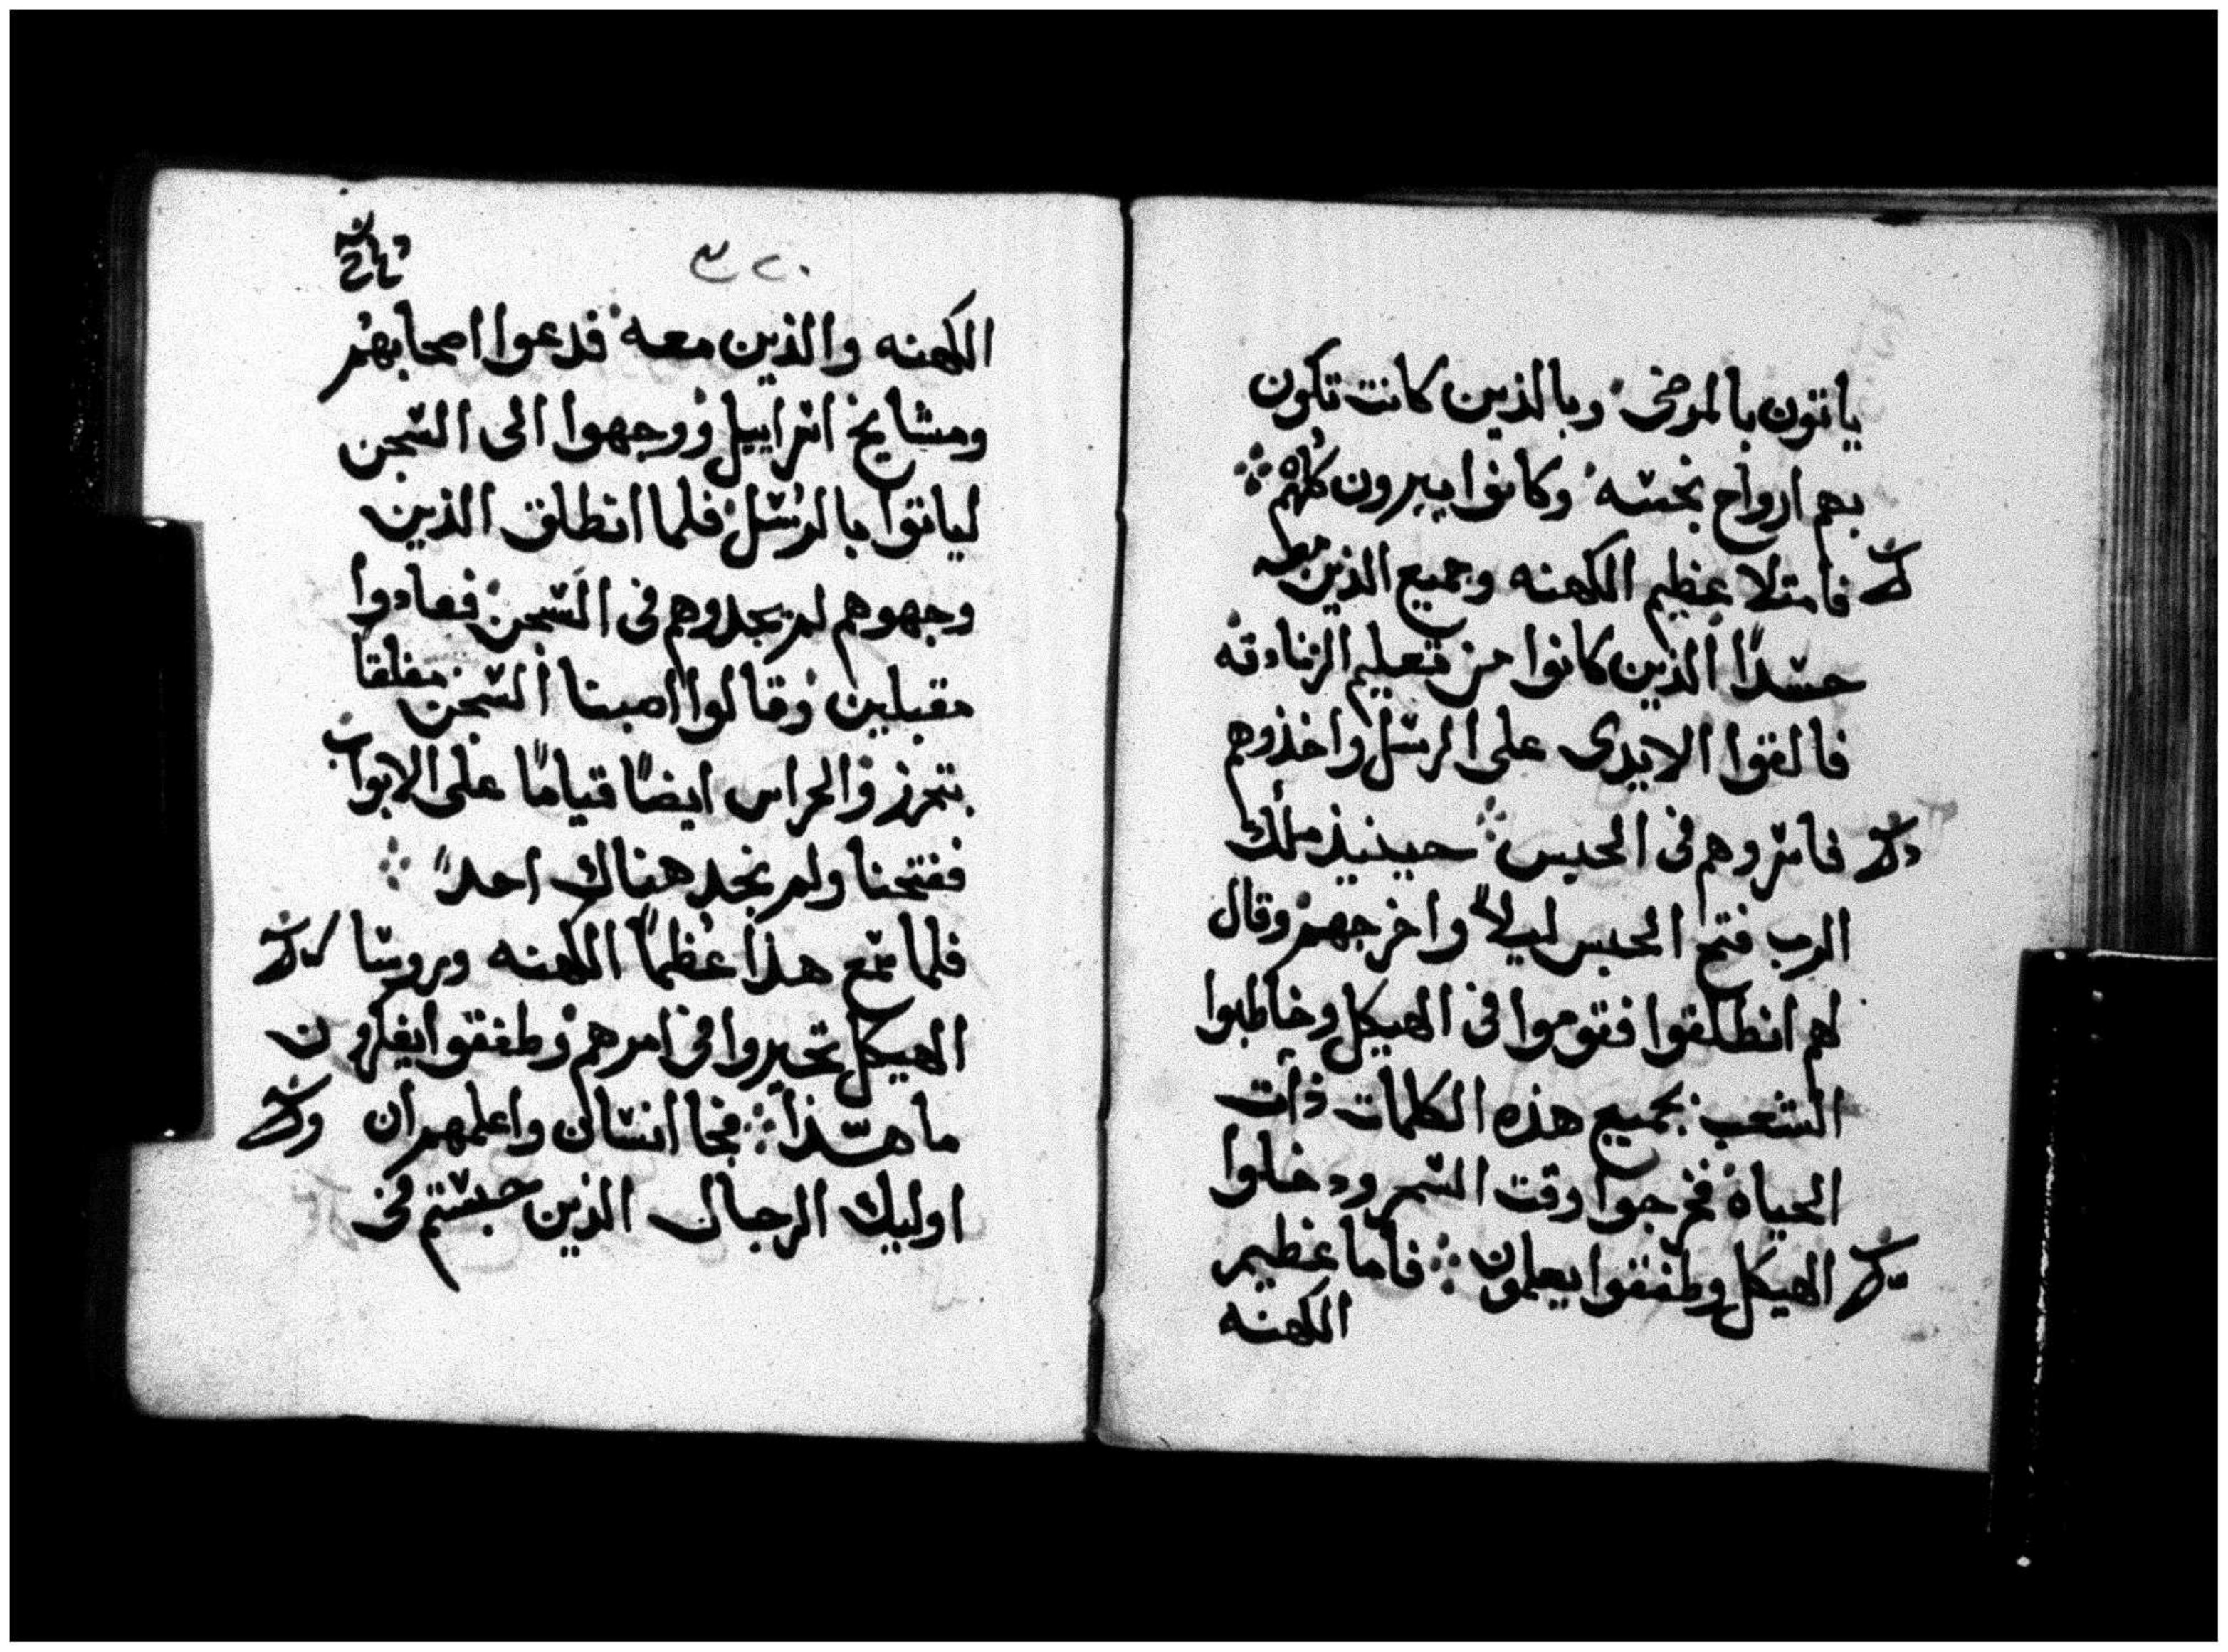 ياتون بالمرضى وبالذين كانت تكون
بهم ارواح نجسه وكانوا يبرون كلهم
فامتلا عظيم الكهنه وجميع الذين معه
حسدًا الذين كانوا من تعليم الزنادقه
فالقوا الايدي على الرسل واخذوهم
فاسروهم في الحبس حينيذ ملاك
الرب فتح الحبس ليلاً واخرجهم وقال
لهم انطلقوا فقوموا في الهيكل وخاطبوا
الشعب بجميع هذه الكلمات ذات
الحياة فخرجوا وقت السحر ودخلوا
الهيكل وطفقوا يعلمون فاما عظيم
الكهنه
الكهنه والذين معه فدعوا اصحابهم
ومشايخ اسراييل ووجهوا الى السجن
لياتوا بالرسل فلما انطلق الذين
وجهوهم لم يجدوهم في السجن فعادوا
مقبلين وقالوا اصبنا السجن مغلقا
بتحرز والحراس ايضًا قيامًا على الابواب
ففتحنا ولم نجد هناك احدً
فلما سمع هذا عظما الكهنه وروسا
الهيكل تحيروا في امرهم وطفقوا يفكرون
ما هذا فجا انسان واعلمهم ان
اوليك الرجال الذين حبستم في